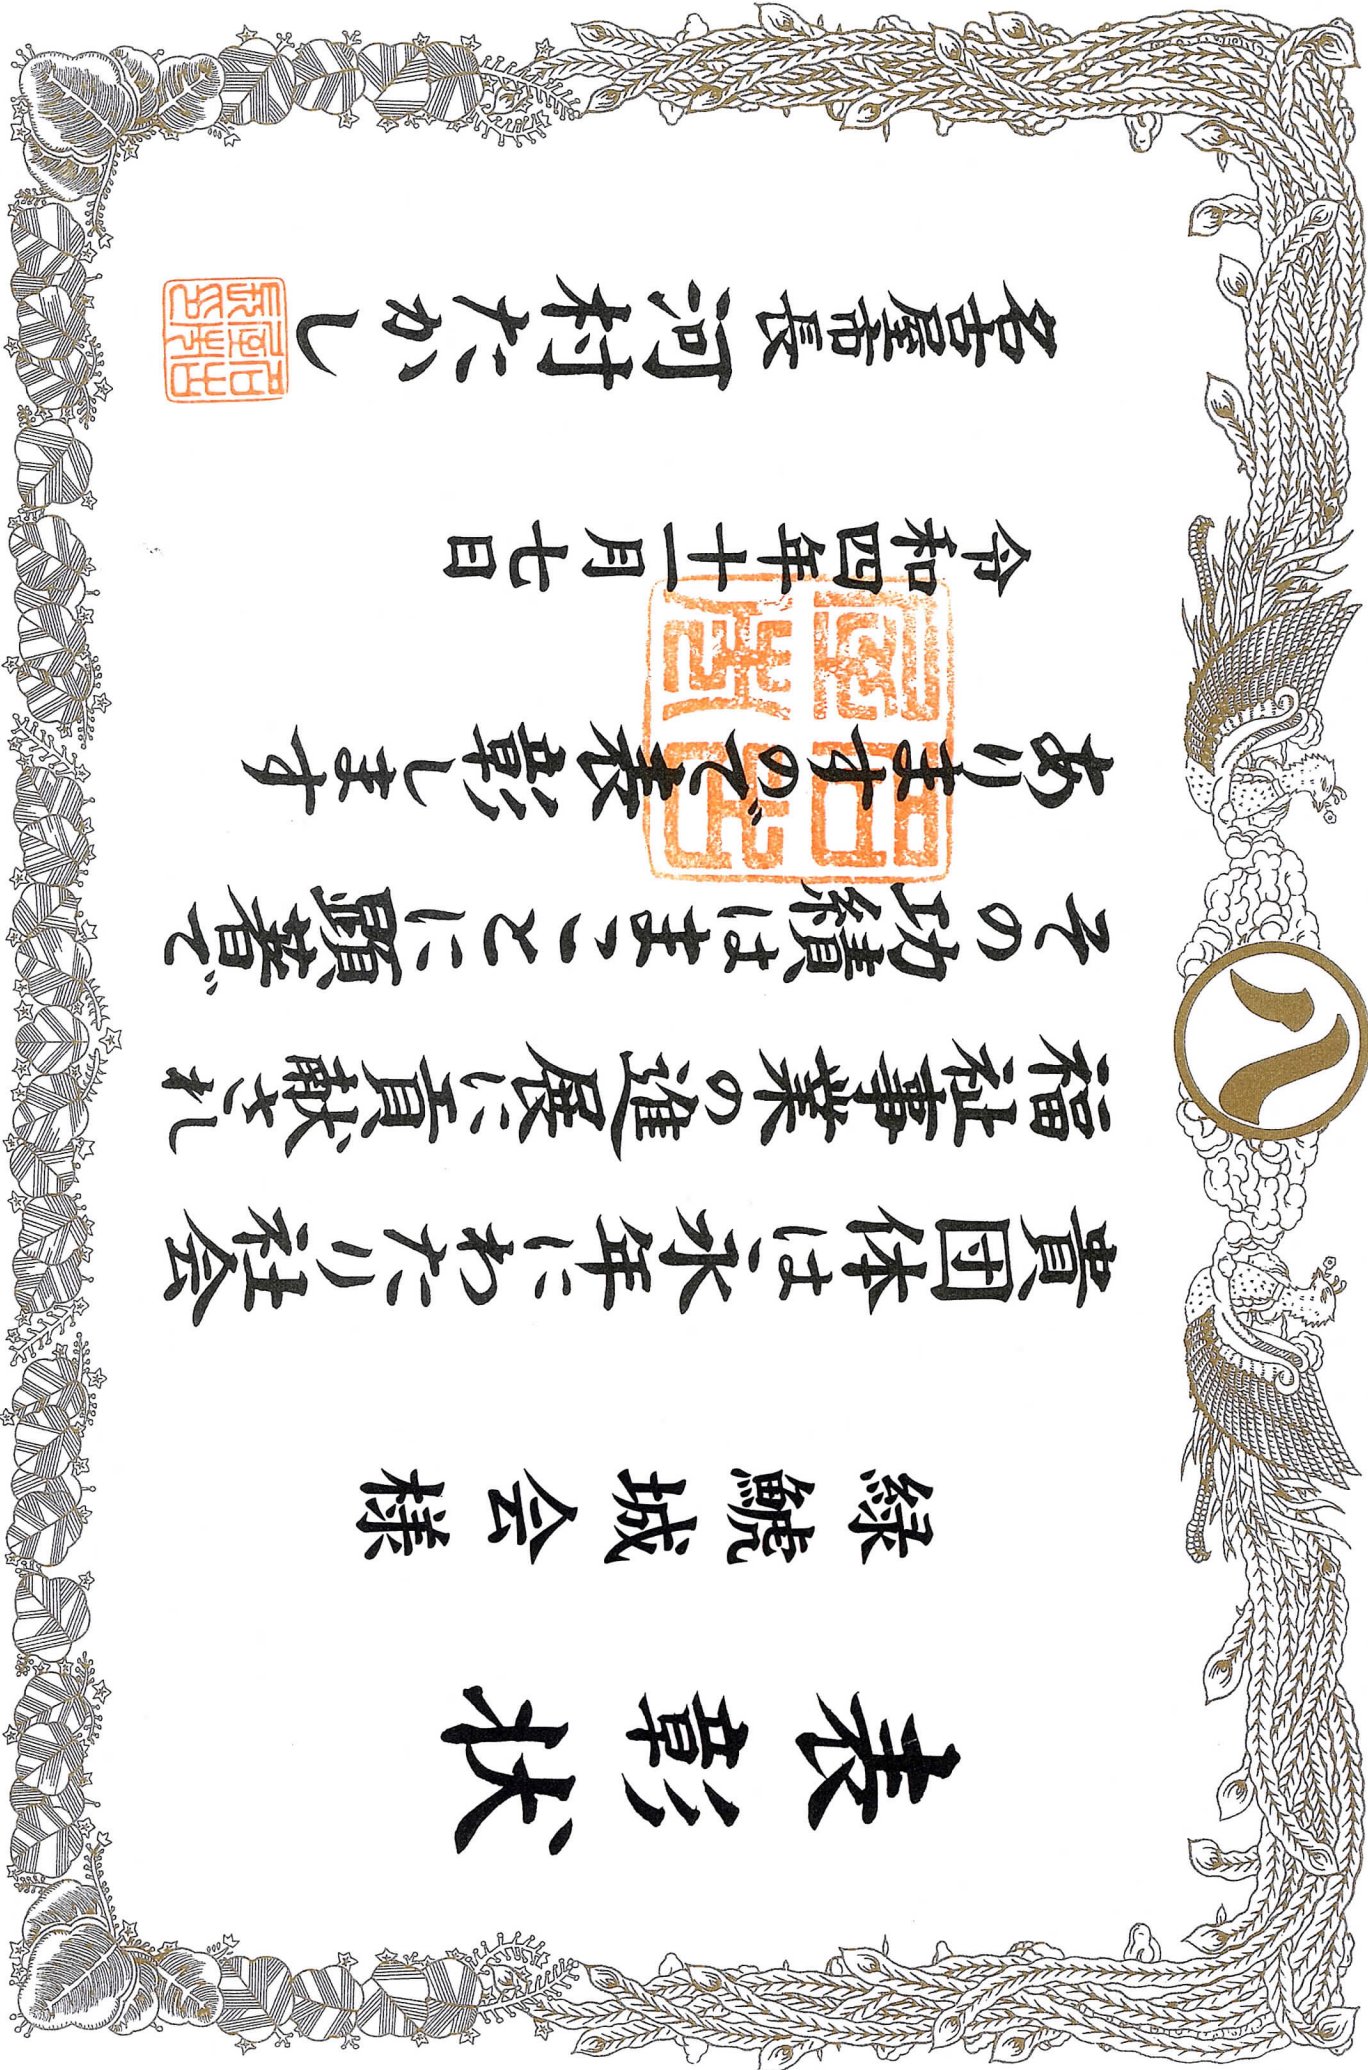 表彰状
緑鯱城会様
貴団体は永年にわたり社会
福祉事業の進展に貢献され
その功績はまことに顕著で
ありますので表彰します
令和四年十一月七日
名古屋市長 河村たかし